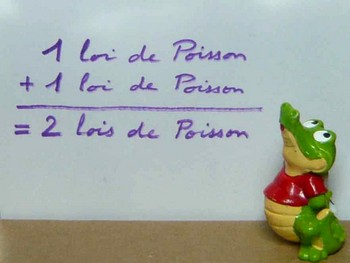 1 loi de Poisson
+ 1 loi de Poisson
= 2 lois de Poisson